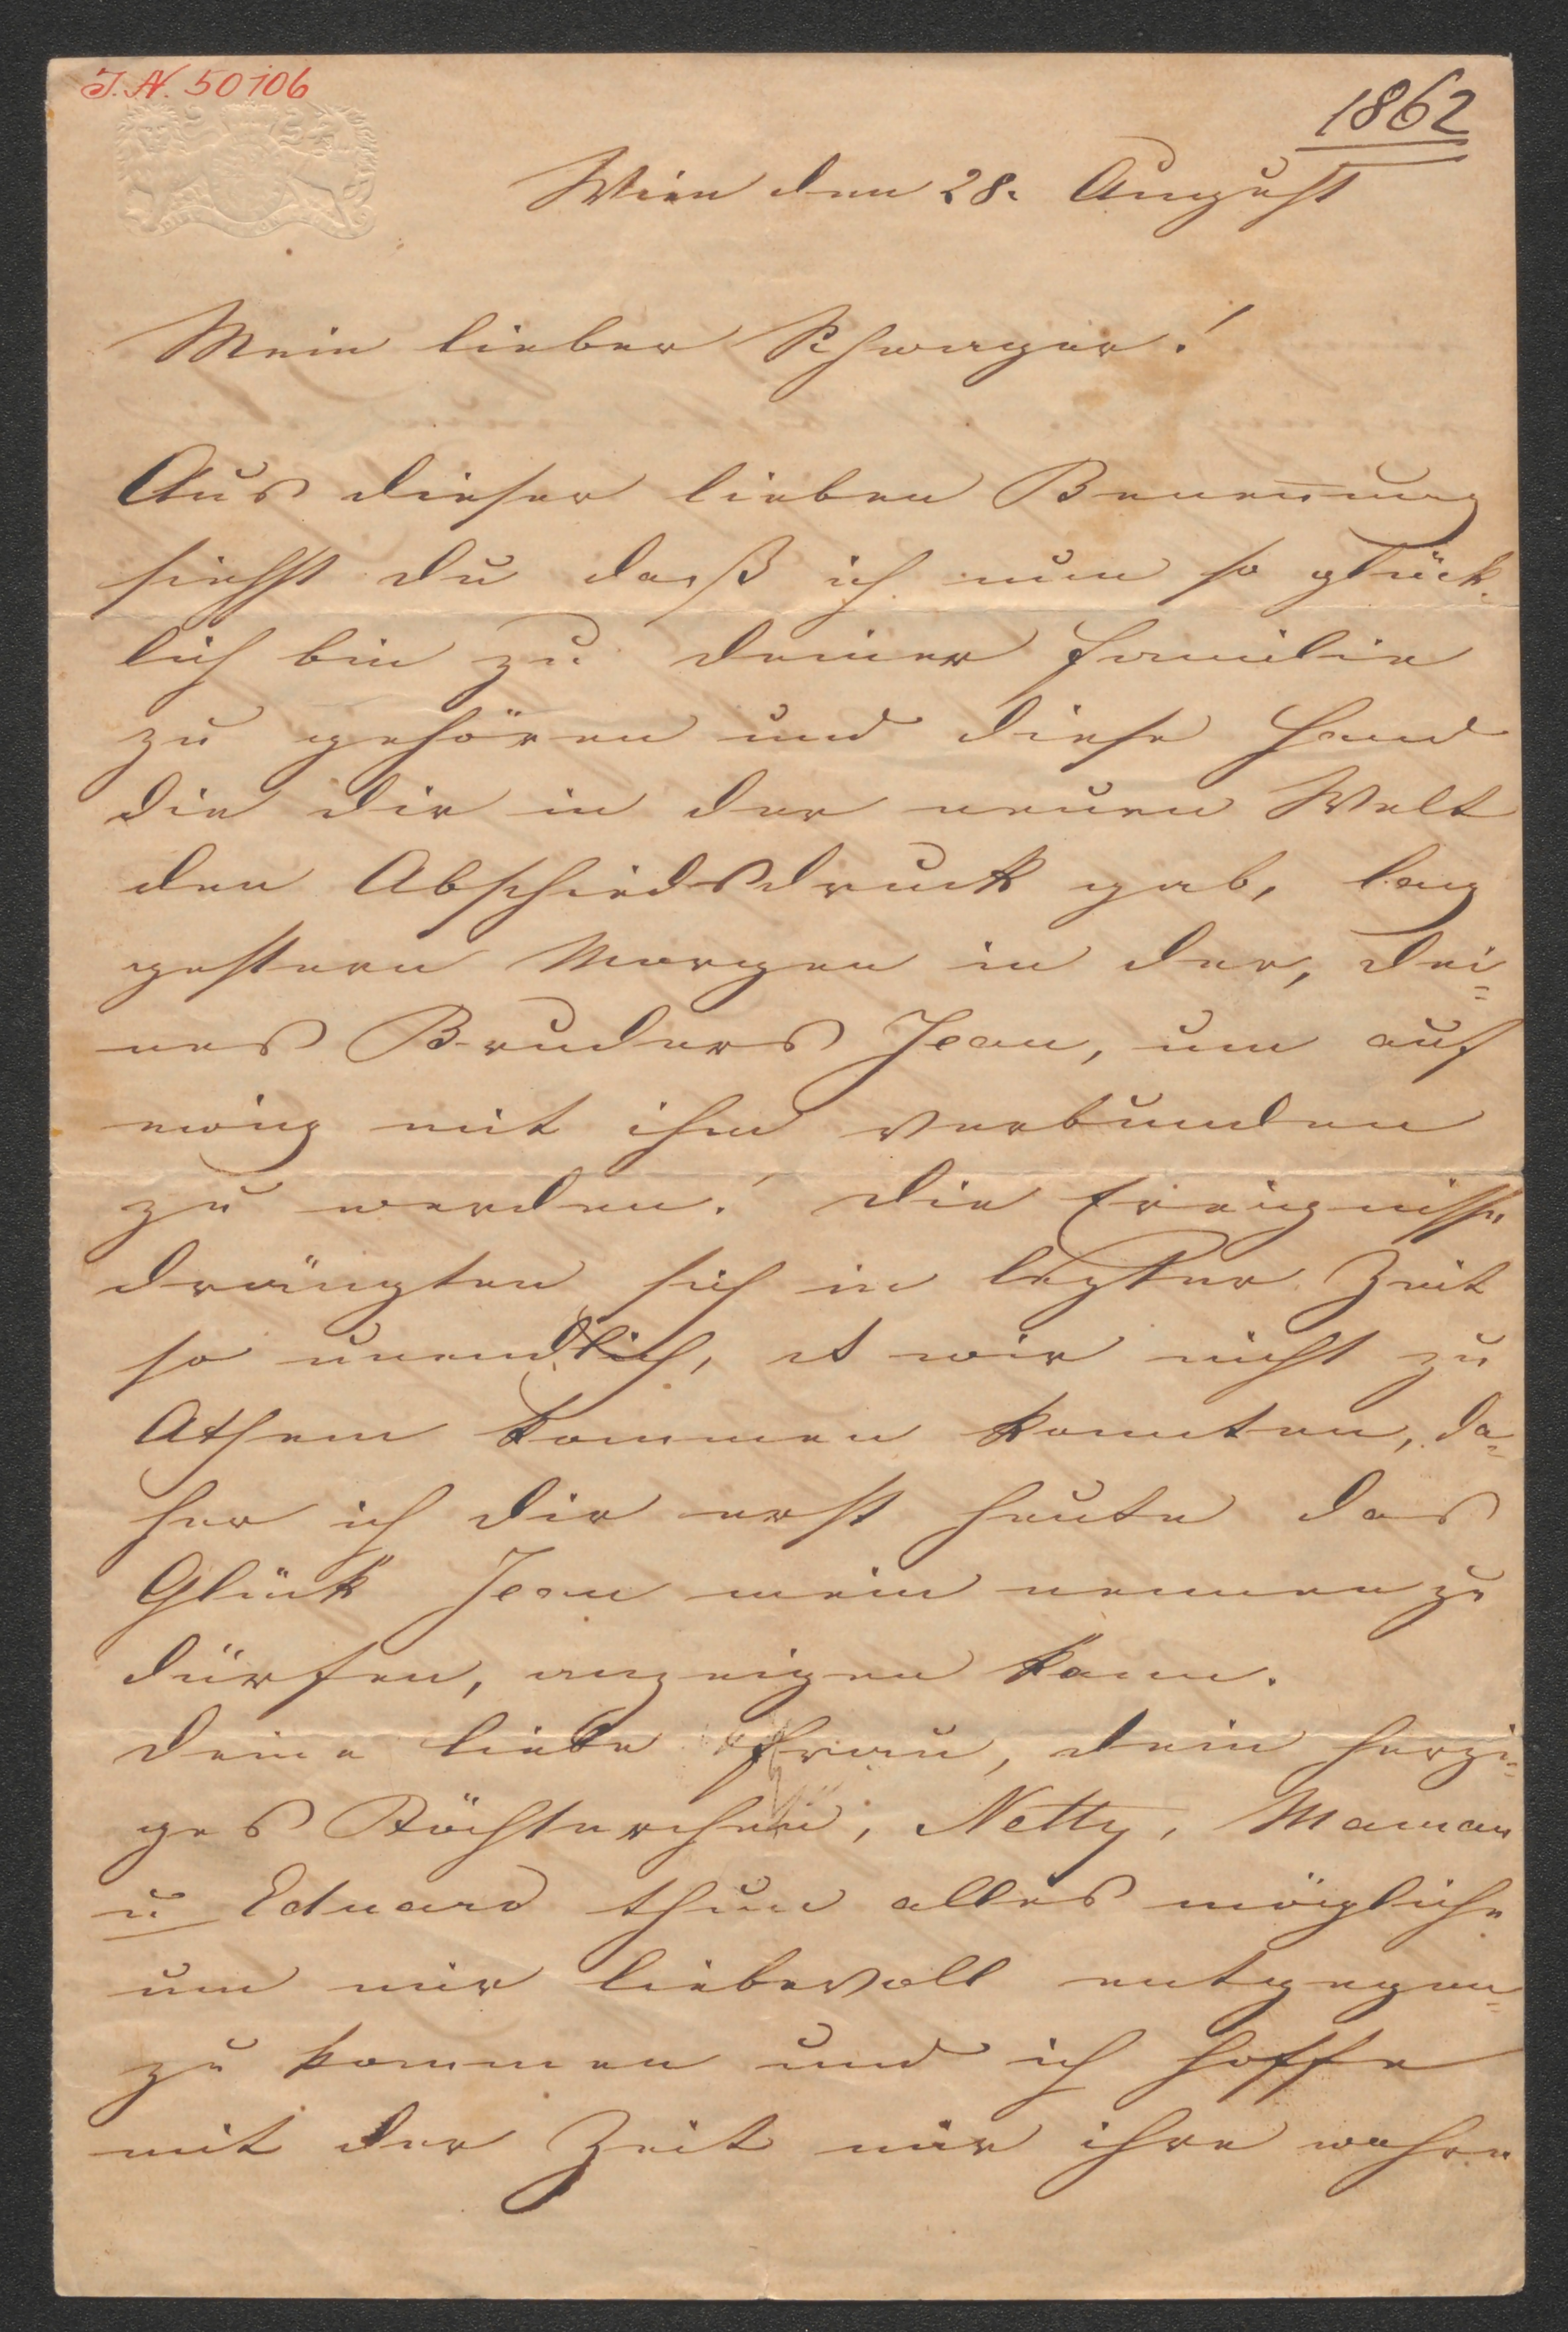 J. N. 50106
1862
Wien den 28. August
Mein lieber Schwager!
Aus dieser lieben Benennung
siehst du daß ich nun so glück-
lich bin zu deiner Familie
zu gehören und diese Hand
die dir in der neuen Welt
den Abschiedsdruck gab, lag
gestern Morgen in der, dei=
nes Bruders Jean, um auf
ewig mit ihm verbunden
zu werden! die Ereignisse
drängten sich in letzter Zeit
so unendlich, wir nicht zu
Athem kommen konnten, da=
her ich dir erst heute das
Glück Jean mein nennen zu
dürfen, anzeigen kann.
deine liebe Frau, dein herzi=
ges Töchterchen, Netty, Maman
u Eduard thun alles mögliche
um mir liebevoll entgegen=
zu kommen und ich hoffe
mit der Zeit mir ihre wahre